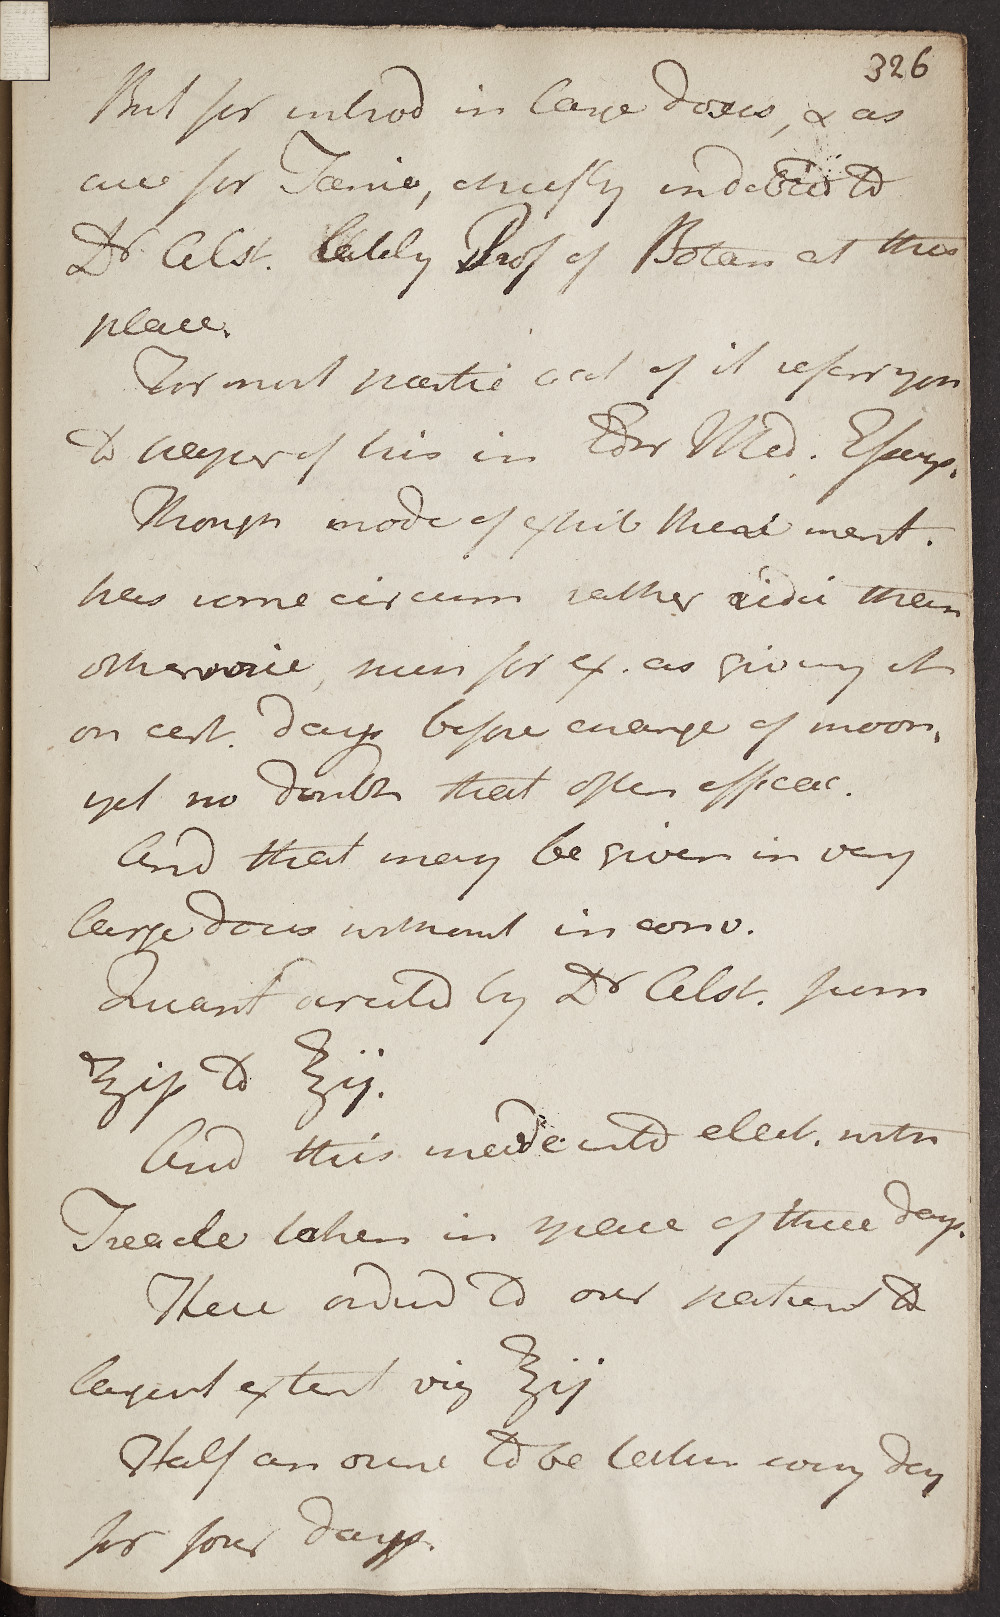 326
But for introd in large doses, & as
cure for Taenia, chiefly indebted to
Dr Alst. lately Prof of Botan at this
place.
For most partic acct of it refer you
to paper of his in Edinr Med. Essays.
Though mode of exhib there ment.
has some circum rather ridic than
otherwise, such for ex. as giving it
on cert. days before change of moon,
yet no doubt that often efficac.
And that may be given in very
large doses without inconv.
Quant directed by Dr Alst. from
℥iß to ℥ij.
And this made into elect. with
Treacle taken in space of three days.
Here ordered to our patient to
largest extent viz ℥ij
Half an ounce to be taken every day
for four days.